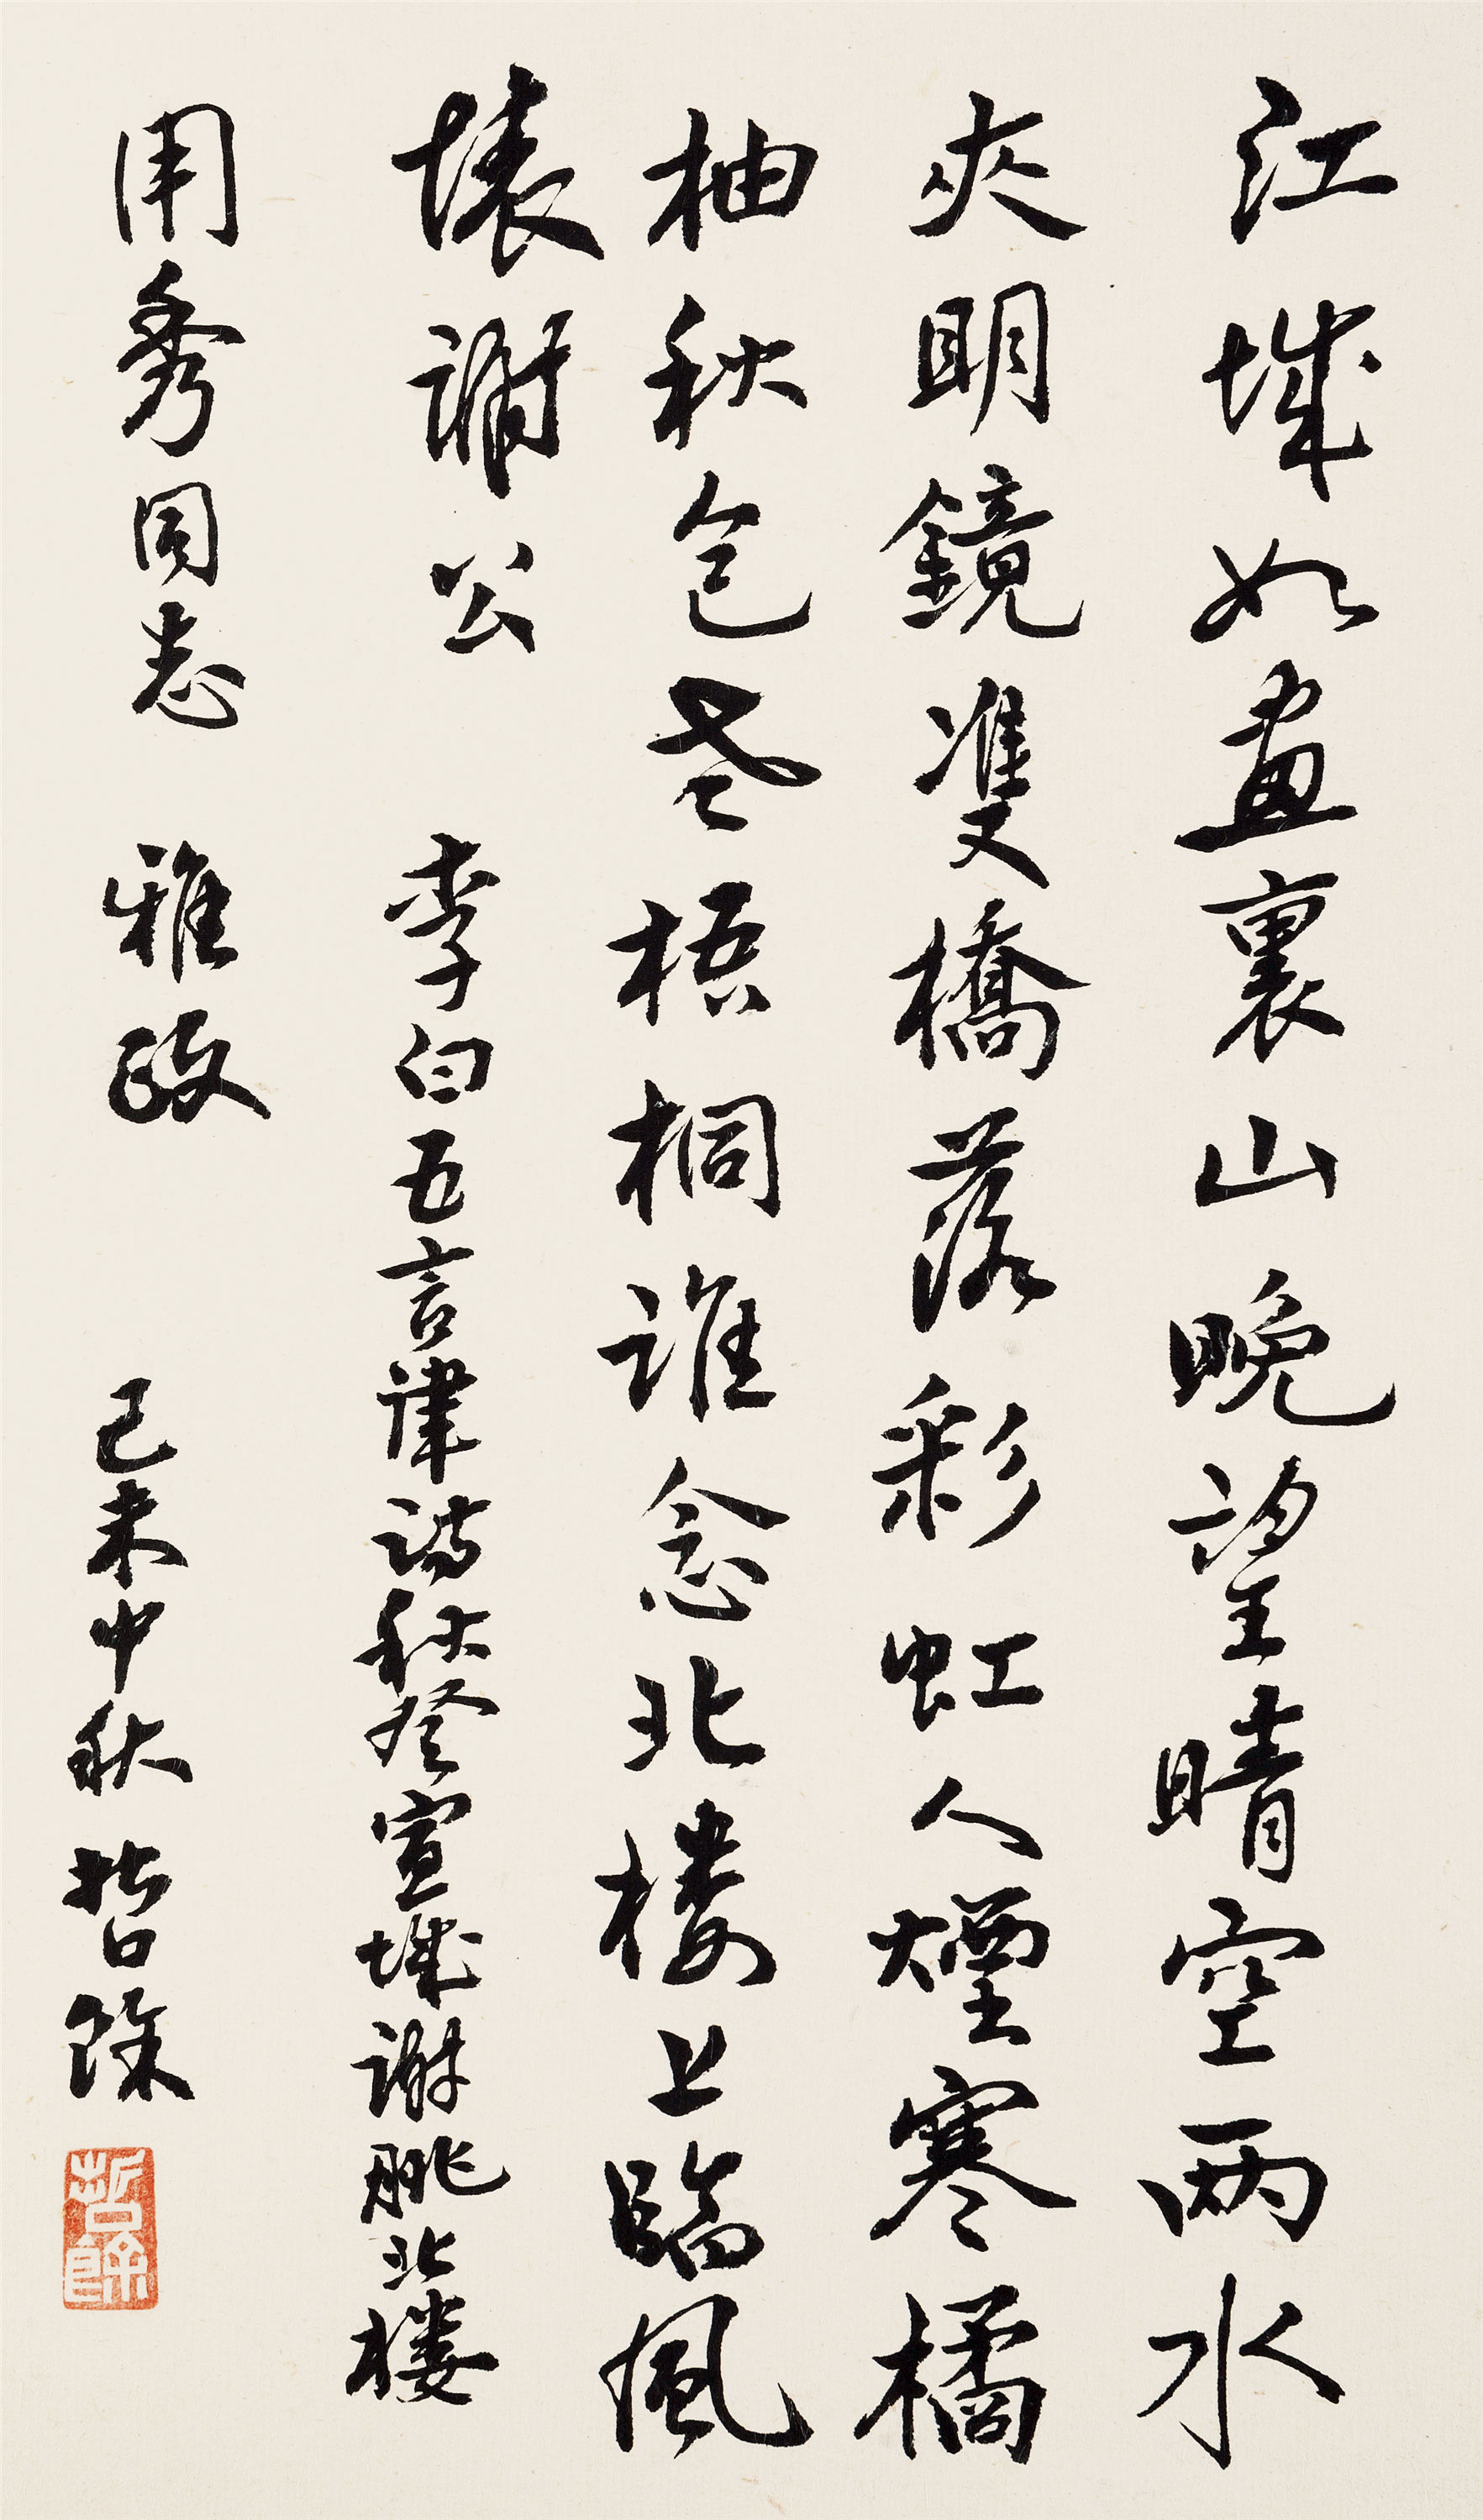 江城如畫裏山晚望晴空兩水
夾明鏡雙橋落彩虹人煙寒橘
柚秋色老梧桐誰念北樓上臨風
懐謝公 李白五言律詩秋登宣城謝朓北樓
用秀同志 雅政 己未中秋 哲餘
哲餘